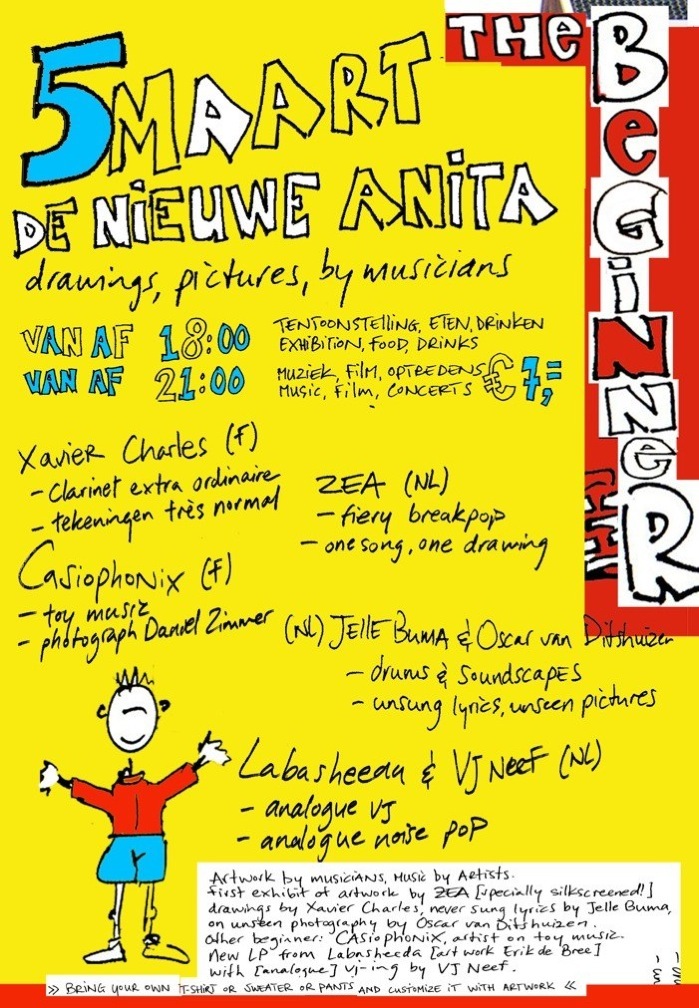 THE BEGINNER
5 MAART
DE NIEUWE ANITA
drawings, pictures, by musicians
VAN AF 18:00
TENTOONSTELLING, ETEN, DRINKEN
EXHIBITION, FOOD, DRINKS
VAN AF 21:00
MUZIEK, FILM, OPTREDENS
MUSIC, FILM, CONCERTS
€ 7,=
Xavier Charles (F)
- Clarinet extra ordinaire
- tekeningen très normal
ZEA (NL)
- fiery breakpop
- one song, one drawing
Casiophonix (F)
- toy music
- photograph Daniel Zimmer
(NL) JELLE BUMA & Oscar van Ditshuizen
- drums & soundscapes
- unsung lyrics, unseen pictures
Labasheeda & VJ Neef (NL)
- analogue VJ
- analogue noise pop
Artwork by musicians, Music by Artists.
first exhibit of artwork by ZEA [specially silkscreened!]
drawings by Xavier Charles, never sung lyrics by Jelle Buma,
on unseen photography by Oscar van Ditshuizen.
Other beginner: CASiOPHONiX, artist on toy music.
New LP from Labasheeda [art work Erik de Bree]
with [analogue] VJ-ing by VJ Neef.
>> BRING YOUR OWN T-SHIRT OR SWEATER OR PANTS AND CUSTOMIZE IT WITH ARTWORK <<